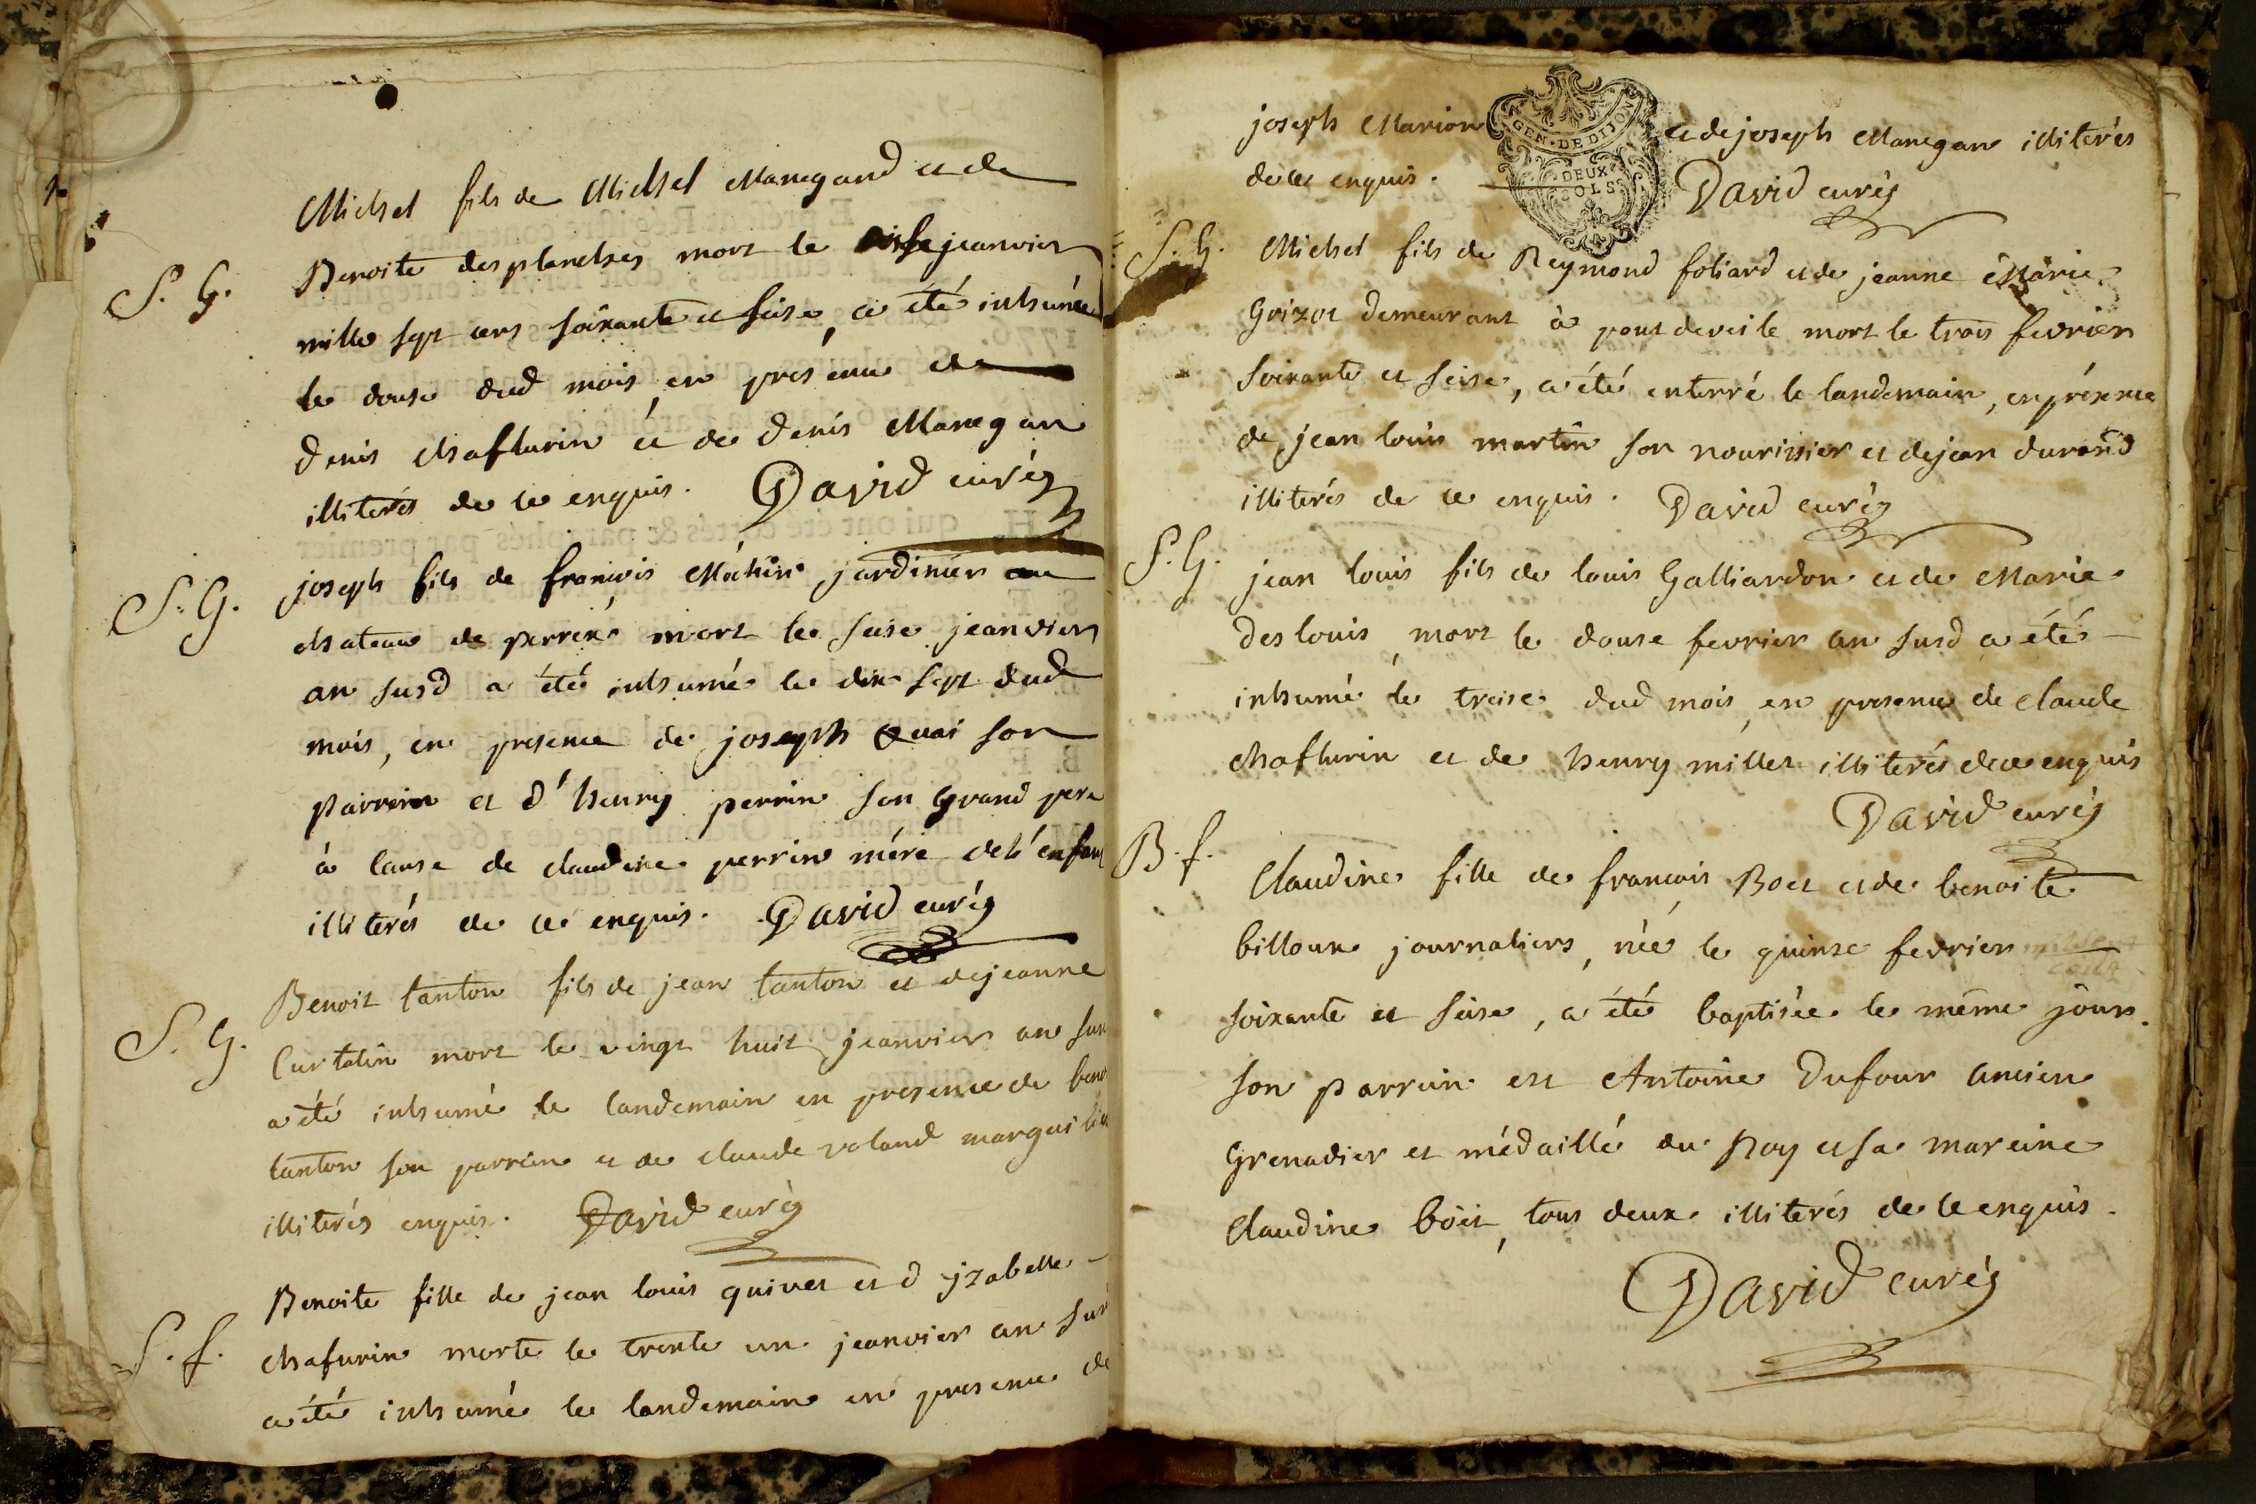 Michel fils de Michel Manegand et de
S. G.
Benoite desplanches mort le onse jeanvier
mille sept cens soixante et seise, a été inhumé
le douse dud mois, en présence de
denis chafturin et de denis Manegan
illiterés de ce enquis. David curé
S. G.
joseph fils de francois Méchin jardinier au
chateau de perrex mort le seise jeanvier
an susd a été inhumé le dix sept dud
mois, en presence de joseph quai son
parrein et d'henry perrin son grand pere
à cause de claudine perrin mére de l'enfant
illiterés de ce enquis. David curé
S. G.
Benoit tanton fils de jean tanton et de jeanne
Curtelin mort le vingt huit jeanvier an
a été inhumé le landemain en presence de
tanton son parrein et de claude voland
illiterés enquis. David curé
S. f.
Benoite fille de jean louis quivet et d'yzabelle
chafurin morte le trente un jeanvier an
a été inhumé le landemain en presence de
joseph Marion et de joseph Manegan illiterés
de ce enquis. David curé
GEN · DE DIJON
DEUX
SOLS
S. G.
Michel fils de Reymond foliard et de jeanne Marie
Goizot demeurant à pont de veile mort le trois fevrier
soixante et seise, a été enterré le landemain, en présence
de jean louis martin son nourissier et de jean durand
illiterés de ce enquis. David curé
S. G.
jean louis fils de louis Galliardon et de Marie
deslouis, mort le douse fevrier an susd a été
inhumé le treise dud mois, en presence de claude
chafturin et de henry millet illiterés de ce enquis
David curé
B. f.
Claudine fille de francois Boet et de benoite
billoux journaliers, née le quinse fevrier
soixante et seise, a été baptisée le même jour.
son parrein est Antoine Dufour ancien
Grenadier et médaillé du Roy et sa mareine
Claudine böet, tous deux illiterés de ce enquis.
David curé